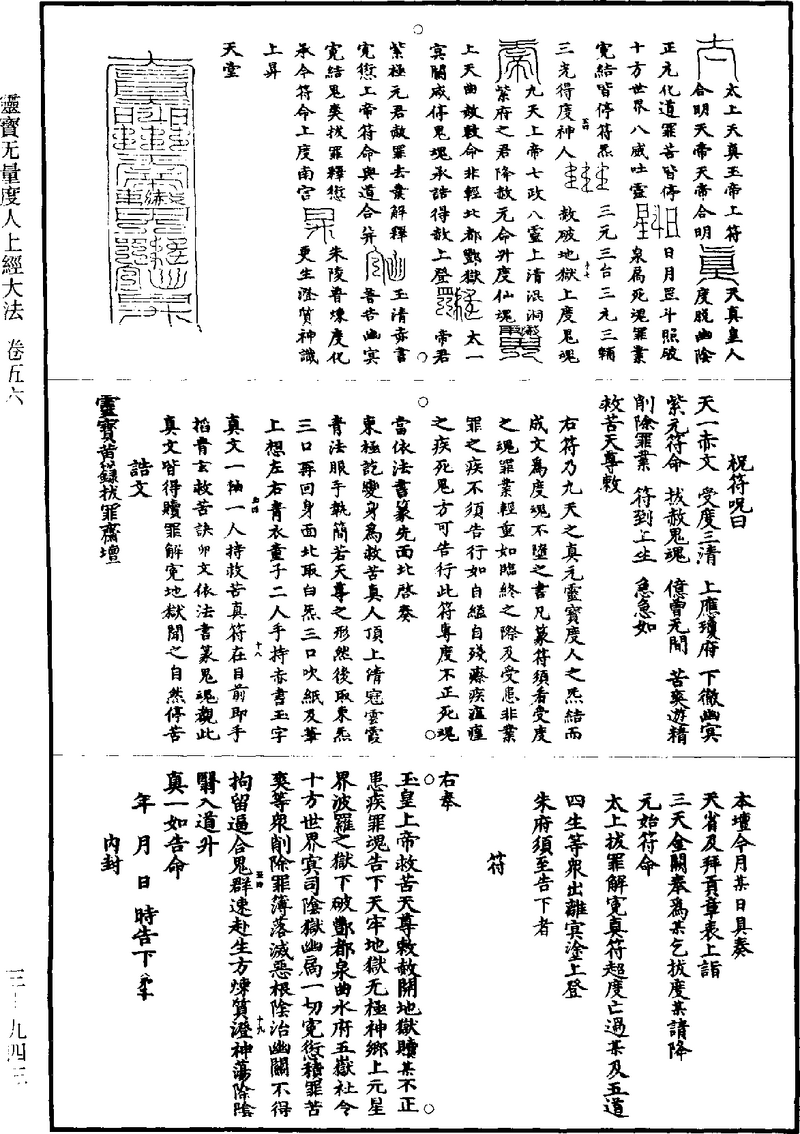 太上天真玉帝上符
合明天帝天帝合明 天真皇人
正元化道罪苦皆停 度脱幽陰
十方世界八威吐靈 日月罡斗照破
寃結皆停符炁 泉局死魂罪業
三光得度神人 三元三台三元三輔
敕破地獄上度鬼魂
九天上帝七政八靈上清混洞
紫府之君降敕元命升度仙魂
上天曲赦敕命非輕北都酆獄 太一
冥關咸停鬼魂承誥得敕上登 帝君
紫極元君赦罪去業解釋 玉清赤書
寃愆上帝符命與道合并 普告幽冥
寃結鬼爽拔罪釋愆 朱陵普煉度化
承令符命上度南宮 更生澄質神識
上昇
天堂
祝符呪曰
天一赤文 受度三清 上應瓊府 下徹幽冥
紫元符命 拔赦鬼魂 億曾无間 苦爽遊精
削除罪業 符到上生 急急如
救苦天尊敕
右符乃九天之真元靈寶度人之炁結而
成文為度魂不墮之書凡篆符須看受度
之魂罪業輕重如臨終之際及受患非業
罪之疾不須告行如自縊自殘療疾瘟𤷾
之疾死鬼方可告行此符專度不正死魂
當依法書篆先面北啓奏
東極訖變身為救苦真人頂上清冠雲霞
青法服手執簡若天尊之形然後取東炁
三口再回身面北取白炁三口吹紙及筆
上想左右青衣童子二人手持赤書玉字
真文一軸一人持救苦真符在目前即手
掐青玄救苦訣卯文依法書篆鬼魂觀此
真文皆得贖罪解寃地獄聞之自然停苦
誥文
靈寶黃籙拔罪齋壇
本壇今月某日具奏
天省及拜貢章表上詣
三天金闕奉為某乞拔度某請降
元始符命
太上拔罪解寃真符超度亡過某及五道
四生等衆出離冥塗上登
朱府須至告下者
符
右奉
玉皇上帝救苦天尊敕赦開地獄贖某不正
患疾罪魂告下天牢地獄无極神鄉上元星
界波羅之獄下破酆都泉曲水府五嶽社令
十方世界冥司陰獄幽局一切寃衍積罪苦
爽等衆削除罪簿落滅惡根陰治幽關不得
拘留逼合鬼群速赴生方煉質澄神蕩除陰
翳入道升
真一如告命
年 月 日 時告下
内封
靈寶无量度人上經大法 卷五六
三–九四三